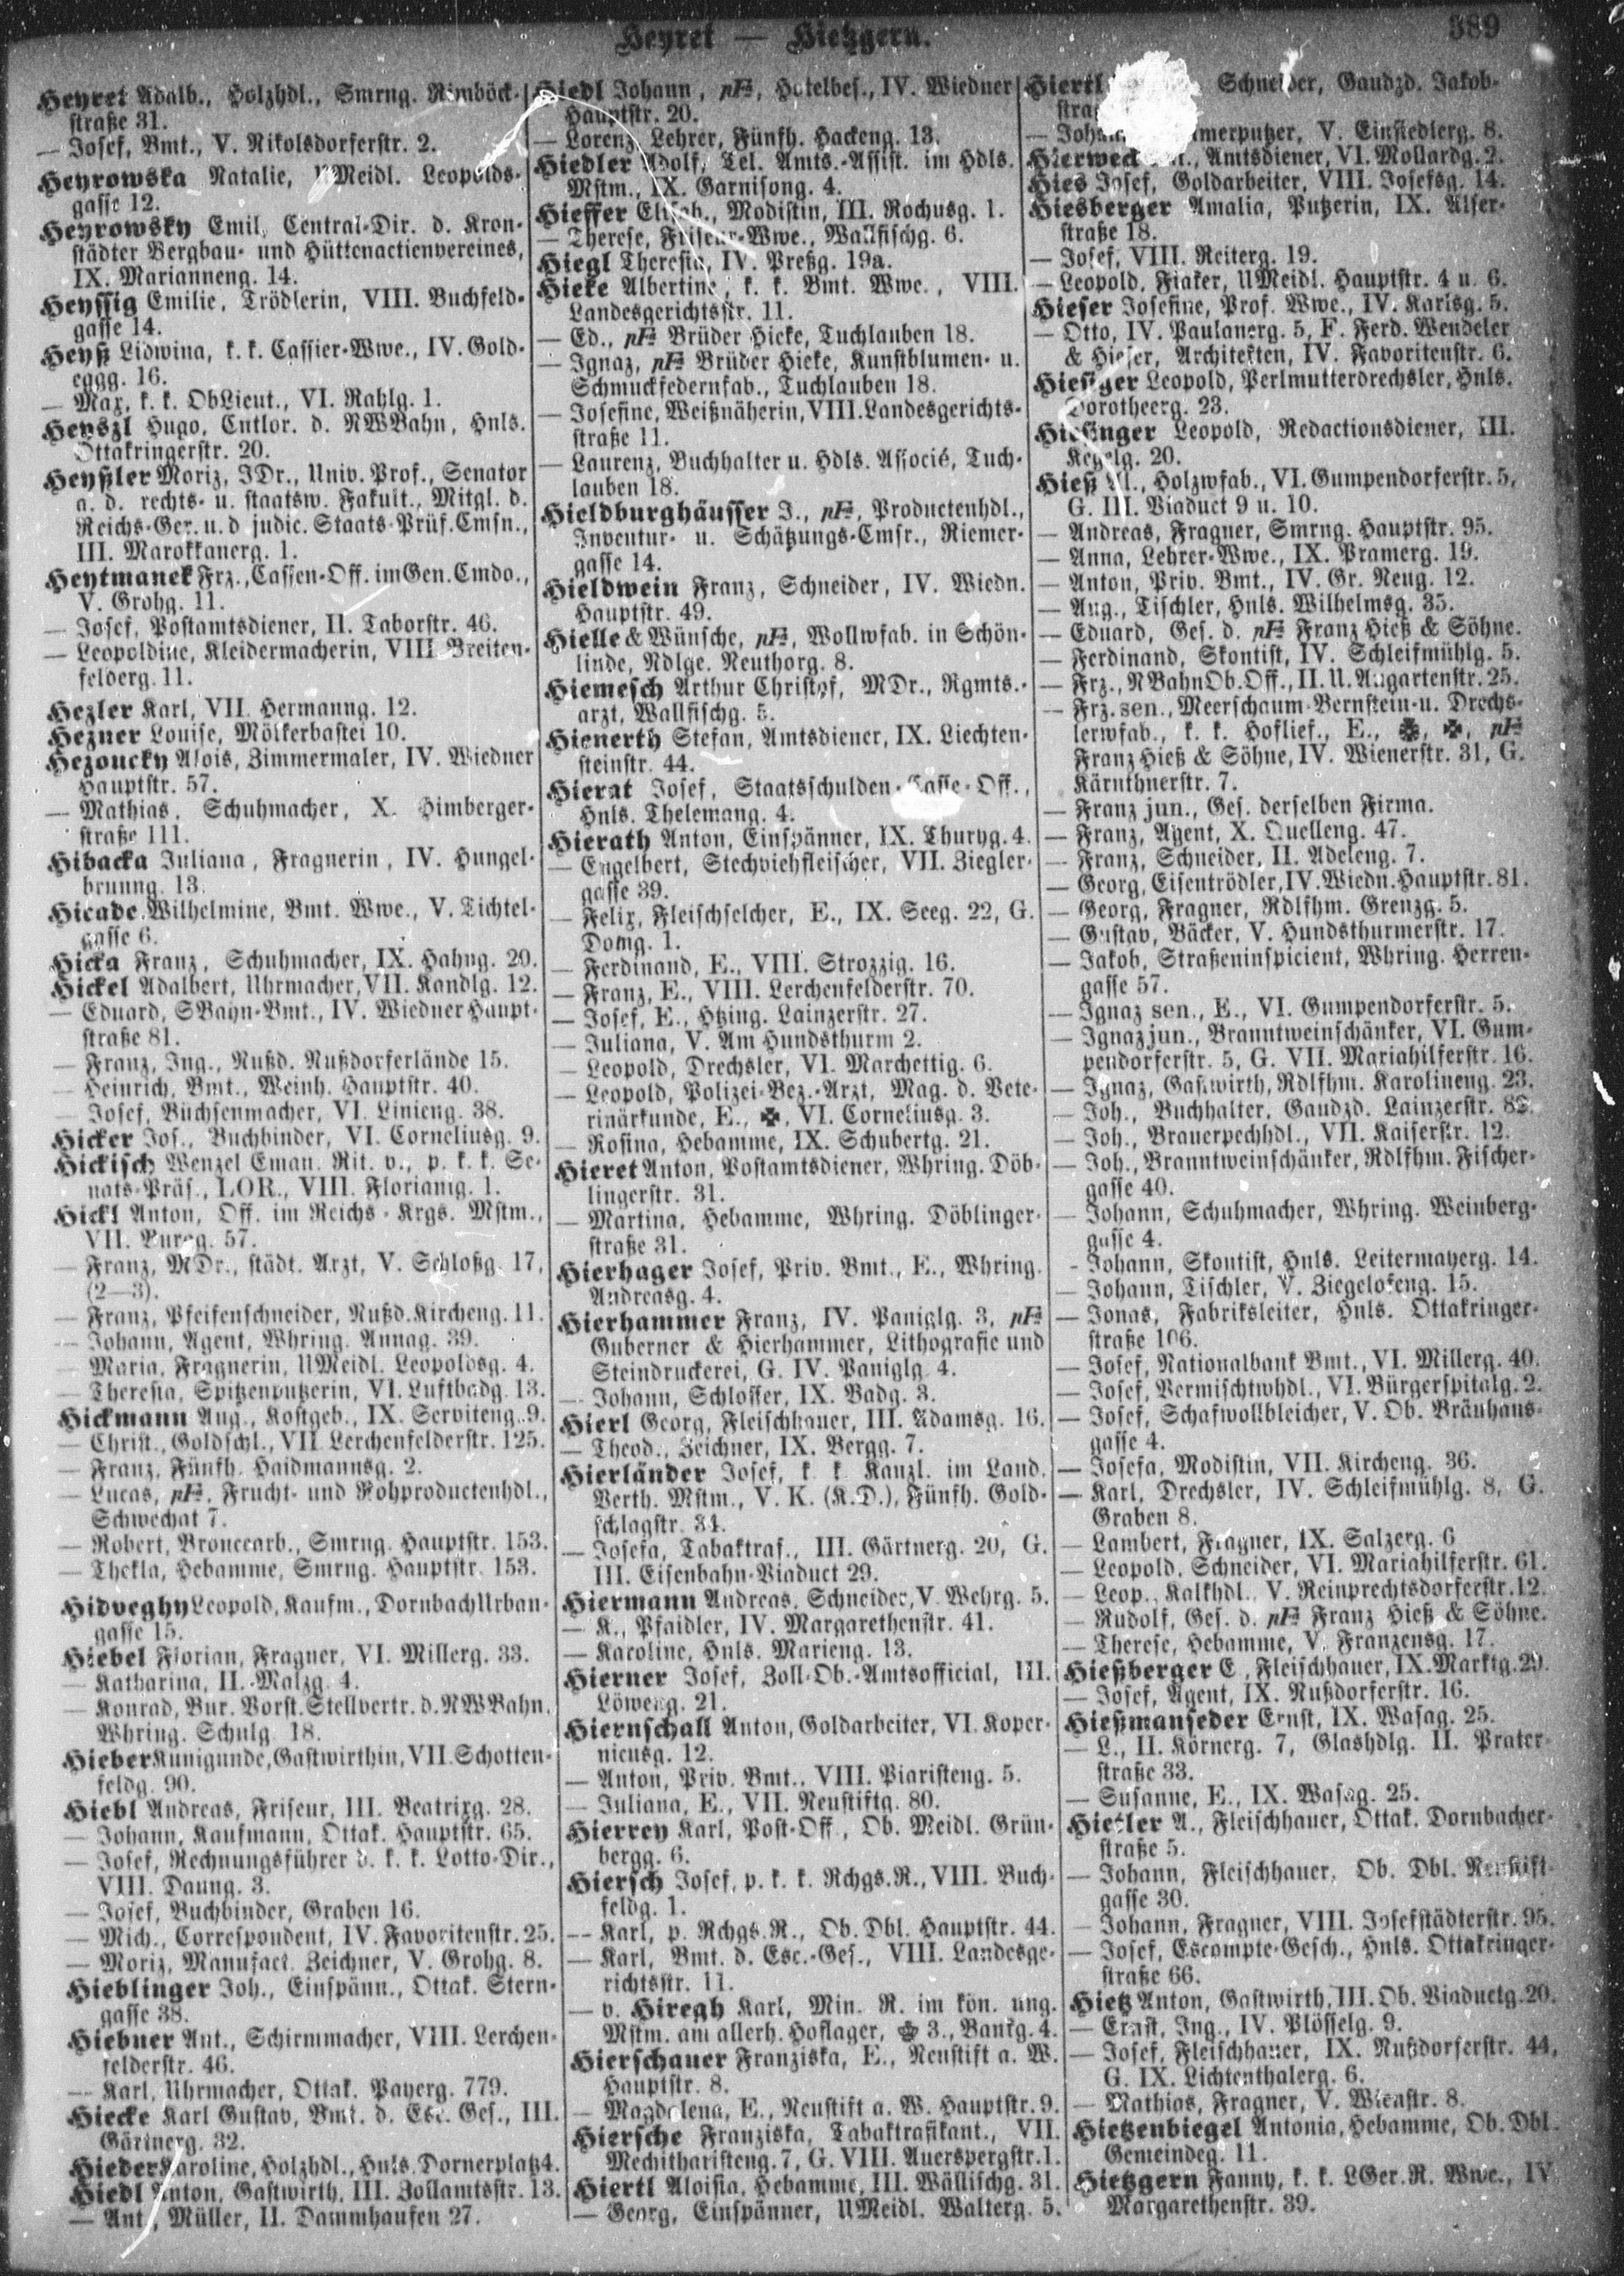 Heyret — Hietzgern.
389
Heyret Adalb., Holzhdl., Smrng. Rimböck-
straße 31.
— Josef, Bmt., V. Nikolsdorferstr. 2.
Heyrowska Natalie, UMeidl. Leopolds-
gasse 12.
Heyrowsky Emil, Central-Dir. d. Kron-
städter Bergbau- und Hüttenactienvereines,
IX. Marianneng. 14.
Heyssig Emilie, Trödlerin, VIII. Buchfeld-
gasse 14.
Heyß Lidwina, k. k. Cassier-Wwe., IV. Gold-
eggg. 16.
— Max, k. k. ObLieut., VI. Rahlg. 1.
Heyszl Hugo, Cntlor. d. NWBahn, Hnls.
Ottakringerstr. 20.
Heyßler Moriz, JDr., Univ. Prof., Senator
a. d. rechts- u. staatsw. Fakult., Mitgl. d.
Reichs-Ger. u. d judic. Staats-Prüf. Cmsn.,
III. Marokkanerg. 1.
Heytmanek Frz., Cassen-Off. im Gen. Cmdo.,
V. Grohg. 11.
— Josef, Postamtsdiener, II. Taborstr. 46.
— Leopoldine, Kleidermacherin, VIII. Breiten-
felderg. 11.
Hezler Karl, VII. Hermanng. 12.
Hezner Louise, Mölkerbastei 10.
Hezoucky Alois, Zimmermaler, IV. Wiedner
Hauptstr. 57.
— Mathias, Schuhmacher, X. Himberger-
straße 111.
Hibacka Juliana, Fragnerin, IV. Hungel-
brunng. 13.
Hicade Wilhelmine, Bmt. Wwe., V. Tichtel-
gasse 6.
Hicka Franz, Schuhmacher, IX. Hahng. 20.
Hickel Adalbert, Uhrmacher, VII. Kandlg. 12.
— Eduard, SBahn-Bmt., IV. Wiedner Haupt-
straße 81.
— Franz, Ing., Nußd. Nußdorferlände 15.
— Heinrich, Bmt., Weinh. Hauptstr. 40.
— Josef, Büchsenmacher, VI. Linieng. 38.
Hicker Jos., Buchbinder, VI. Corneliusg. 9.
Hickisch Wenzel Eman. Rit. v., p. k. k. Se-
nats-Präs., LOR., VIII. Floriang. 1.
Hickl Anton, Off. im Reichs-Krgs. Mstm.,
VII. Burgg. 57.
— Franz, MDr., städt. Arzt, V. Schloßg. 17,
(2—3).
— Franz, Pfeifenschneider, Nußd. Kircheng. 11.
— Johann, Agent, Whring. Annag. 39.
— Maria, Fragnerin, UMeidl. Leopoldsg. 4.
— Theresia, Spitzenputzerin, VI. Luftbadg. 13.
Hickmann Aug., Kostgeb., IX. Serviteng. 9.
— Christ., Goldschl., VII. Lerchenfelderstr. 125.
— Franz, Fünfh. Haidmannsg. 2.
— Lucas, pF., Frucht- und Rohproductenhdl.,
Schwechat 7.
— Robert, Broncearb., Smrng. Hauptstr. 153.
— Thekla, Hebamme, Smrng. Hauptstr. 153.
Hidveghy Leopold, Kaufm., Dornbach Urban-
gasse 15.
Hiebel Florian, Fragner, VI. Millerg. 33.
— Katharina, II. Malzg. 4.
— Konrad, Bur. Vorst. Stellvertr. d. NWBahn,
Whring. Schulg. 18.
Hieber Kunigunde, Gastwirthin, VII. Schotten-
feldg. 90.
Hiebl Andreas, Friseur, III. Beatrixg. 28.
— Johann, Kaufmann, Ottak. Hauptstr. 65.
— Josef, Rechnungsführer d. k. k. Lotto-Dir.,
VIII. Daung. 3.
— Josef, Buchbinder, Graben 16.
— Mich., Correspondent, IV. Favoritenstr. 25.
— Moriz, Manufact. Zeichner, V. Grohg. 8.
Hieblinger Joh., Einspänn., Ottak. Stern-
gasse 38.
Hiebner Ant., Schirmmacher, VIII. Lerchen-
felderstr. 46.
— Karl, Uhrmacher, Ottak. Payerg. 779.
Hiecke Karl Gustav, Bmt. d. Esc. Ges., III.
Gärtnerg. 32.
Hieder Karoline, Holzhdl., Hnls. Dornerplatz 4.
Hiedl Anton, Gastwirth, III. Zollamtsstr. 13.
— Ant., Müller, II. Dammhaufen 27.
Hiedl Johann, pF., Hotelbes., IV. Wiedner
Hauptstr. 20.
— Lorenz, Lehrer, Fünfh. Hackeng. 13.
Hiedler Adolf, Tel. Amts.-Assist. im Hdls.
Mstm., IX. Garnisong. 4.
Hieffer Elisab., Modistin, III. Rochusg. 1.
— Therese, Friseur-Wwe., Wallfischg. 6.
Hiegl Theresia, IV. Preßg. 19a.
Hieke Albertine, k. k. Bmt. Wwe., VIII.
Landesgerichtsstr. 11.
— Ed., pF. Brüder Hieke, Tuchlauben 18.
— Ignaz, pF. Brüder Hieke, Kunstblumen- u.
Schmuckfedernfab., Tuchlauben 18.
— Josefine, Weißnäherin, VIII. Landesgerichts-
straße 11.
— Laurenz, Buchhalter u. Hdls. Associé, Tuch-
lauben 18.
Hieldburghäusser J., pF., Productenhdl.,
Inventur- u. Schätzungs-Cmsr., Riemer-
gasse 14.
Hieldwein Franz, Schneider, IV. Wiedn.
Hauptstr. 49.
Hielle & Wünsche, pF., Wollwfab. in Schön-
linde, Ndlge. Neuthorg. 8.
Hiemesch Arthur Christof, MDr., Rgmts.-
arzt, Wallfischg. 5.
Hienerth Stefan, Amtsdiener, IX. Liechten-
steinstr. 44.
Hierat Josef, Staatsschulden-Casse-Off.,
Hnls. Thelemang. 4.
Hierath Anton, Einspänner, IX. Thuryg. 4.
— Engelbert, Stechviehfleischer, VII. Ziegler-
gasse 39.
— Felix, Fleischselcher, E., IX. Seeg. 22, G.
Domg. 1.
— Ferdinand, E., VIII. Strozzig. 16.
— Franz, E., VIII. Lerchenfelderstr. 70.
— Josef, E., Htzing. Lainzerstr. 27.
— Juliana, V. Am Hundsthurm 2.
— Leopold, Drechsler, VI. Marchettig. 6.
— Leopold, Polizei-Bez.-Arzt, Mag. d. Vete-
rinärkunde, E., ✠, VI. Corneliusg. 3.
— Rosina, Hebamme, IX. Schubertg. 21.
Hieret Anton, Postamtsdiener, Whring. Döb-
lingerstr. 31.
— Martina, Hebamme, Whring. Döblinger-
straße 31.
Hierhager Josef, Priv. Bmt., E., Whring.
Andreasg. 4.
Hierhammer Franz, IV. Paniglg. 3, pF.
Guberner & Hierhammer, Lithografie und
Steindruckerei, G. IV. Paniglg. 4.
— Johann, Schlosser, IX. Badg. 3.
Hierl Georg, Fleischhauer, III. Adamsg. 16.
— Theod., Zeichner, IX. Bergg. 7.
Hierländer Josef, k. k. Kanzl. im Land.
Verth. Mstm., V. K. (K.D.), Fünfh. Gold-
schlagstr. 34.
— Josefa, Tabaktraf., III. Gärtnerg. 20, G.
III. Eisenbahn-Viaduct 29.
Hiermann Andreas, Schneider, V. Wehrg. 5.
— K., Pfaidler, IV. Margarethenstr. 41.
— Karoline, Hnls. Marieng. 13.
Hierner Josef, Zoll-Ob.-Amtsofficial, III.
Löweng. 21.
Hiernschall Anton, Goldarbeiter, VI. Koper-
nicusg. 12.
— Anton, Priv. Bmt., VIII. Piaristeng. 5.
— Juliana, E., VII. Neustiftg. 80.
Hierrey Karl, Post-Off., Ob. Meidl. Grün-
bergg. 6.
Hiersch Josef, p. k. k. Rchgs.R., VIII. Buch-
feldg. 1.
— Karl, p. Rchgs.R., Ob. Dbl. Hauptstr. 44.
— Karl, Bmt. d. Esc.-Ges., VIII. Landesge-
richtsstr. 11.
— v. Hiregh Karl, Min. R. im kön. ung.
Mstm. am allerh. Hoflager, 3., Bankg. 4.
Hierschauer Franziska, E., Neustift a. W.
Hauptstr. 8.
— Magdalena, E., Neustift a. W. Hauptstr. 9.
Hiersche Franziska, Tabaktrafikant., VII.
Mechitharisteng. 7, G. VIII. Auerspergstr. 1.
Hiertl Aloisia, Hebamme, III. Wällischg. 31.
— Georg, Einspänner, UMeidl. Walterg. 5.
Hiertl Schneider, Gaudzd. Jakob-
— V. Einsiedlerg. 8.
Hierweck Amtsdiener, VI. Mollardg. 2.
Hies Josef, Goldarbeiter, VIII. Josefsg. 14.
Hiesberger Amalia, Putzerin, IX. Alser-
straße 18.
— Josef, VIII. Reiterg. 19.
— Leopold, Fiaker, UMeidl. Hauptstr. 4 u. 6.
Hieser Josefine, Prof. Wwe., IV. Karlsg. 5.
— Otto, IV. Paulanerg. 5, F. Ferd. Wendeler
& Hieser, Architekten, IV. Favoritenstr. 6.
Hiesiger Leopold, Perlmutterdrechsler, Hnls.
Dorotheerg. 23.
Hiesinger Leopold, Redactionsdiener, III.
Kegelg. 20.
Hieß Holzwfab., VI. Gumpendorferstr. 5,
G. III. Viaduct 9 u. 10.
— Andreas, Fragner, Smrng. Hauptstr. 95.
— Anna, Lehrer-Wwe., IX. Pramerg. 19.
— Anton, Priv. Bmt., IV. Gr. Neug. 12.
— Aug., Tischler, Hnls. Wilhelmsg. 35.
— Eduard, Ges. d. pF. Franz Hieß & Söhne.
— Ferdinand, Skontist, IV. Schleifmühlg. 5.
— Frz., NBahnOb.Off., II. U. Augartenstr. 25.
— Frz. sen., Meerschaum-Bernstein- u. Drechs-
lerwfab., k. k. Hoflief., E., ✠, ✠, pF.
Franz Hieß & Söhne, IV. Wienerstr. 31, G.
Kärnthnerstr. 7.
— Franz jun., Ges. derselben Firma.
— Franz, Agent, X. Quelleng. 47.
— Franz, Schneider, II. Adeleng. 7.
— Georg, Eisentrödler, IV. Wiedn. Hauptstr. 81.
— Georg, Fragner, Rdlfhm. Grenzg. 5.
— Gustav, Bäcker, V. Hundsthurmerstr. 17.
— Jakob, Straßeninspicient, Whring. Herren-
gasse 57.
— Ignaz sen., E., VI. Gumpendorferstr. 5.
— Ignaz jun., Branntweinschänker, VI. Gum-
pendorferstr. 5, G. VII. Mariahilferstr. 16.
— Ignaz, Gastwirth, Rdlfhm. Karolineng. 23.
— Joh., Buchhalter, Gaudzd. Lainzerstr.
— Joh., Brauerpechhdl., VII. Kaiserstr. 12.
— Joh., Branntweinschänker, Rdlfhm. Fischer-
gasse 40.
— Johann, Schuhmacher, Whring. Weinberg-
gasse 4.
— Johann, Skontist, Hnls. Leitermayerg. 14.
— Johann, Tischler, V. Ziegelofeng. 15.
— Jonas, Fabriksleiter, Hnls. Ottakringer-
straße 106.
— Josef, Nationalbank Bmt., VI. Millerg. 40.
— Josef, Vermischtwhdl., VI. Bürgerspitalg. 2.
— Josef, Schafwollbleicher, V. Ob. Bräuhaus-
gasse 4.
— Josefa, Modistin, VII. Kircheng. 36.
— Karl, Drechsler, IV. Schleifmühlg. 8, G.
Graben 8.
— Lambert, Fragner, IX. Salzerg. 6
— Leopold, Schneider, VI. Mariahilferstr. 61.
— Leop., Kalkhdl., V. Reinprechtsdorferstr. 12.
— Rudolf, Ges. d. pF. Franz Hieß & Söhne.
— Therese, Hebamme, V. Franzensg. 17.
Hießberger E., Fleischhauer, IX. Marktg. 29.
— Josef, Agent, IX. Nußdorferstr. 16.
Hießmanseder Ernst, IX. Wasag. 25.
— L., II. Körnerg. 7, Glashdlg. II. Prater-
straße 33.
— Susanne, E., IX. Wasag. 25.
Hietler A., Fleischhauer, Ottak. Dornbacher-
straße 5.
— Johann, Fleischhauer, Ob. Dbl. Neustift-
gasse 30.
— Johann, Fragner, VIII. Josefstädterstr. 95.
— Josef, Escompte-Gesch., Hnls. Ottakringer-
straße 66.
Hietz Anton, Gastwirth, III. Ob. Viaductg. 20.
— Ernst, Ing., IV. Plösselg. 9.
— Josef, Fleischhauer, IX. Nußdorferstr. 44,
G. IX. Lichtenthalerg. 6.
— Mathias, Fragner, V. Wienstr. 8.
Hietzenbiegel Antonia, Hebamme, Ob. Dbl.
Gemeindeg. 11.
Hietzgern Fanny, k. k. LGer. R. Wwe., IV.
Margarethenstr. 39.